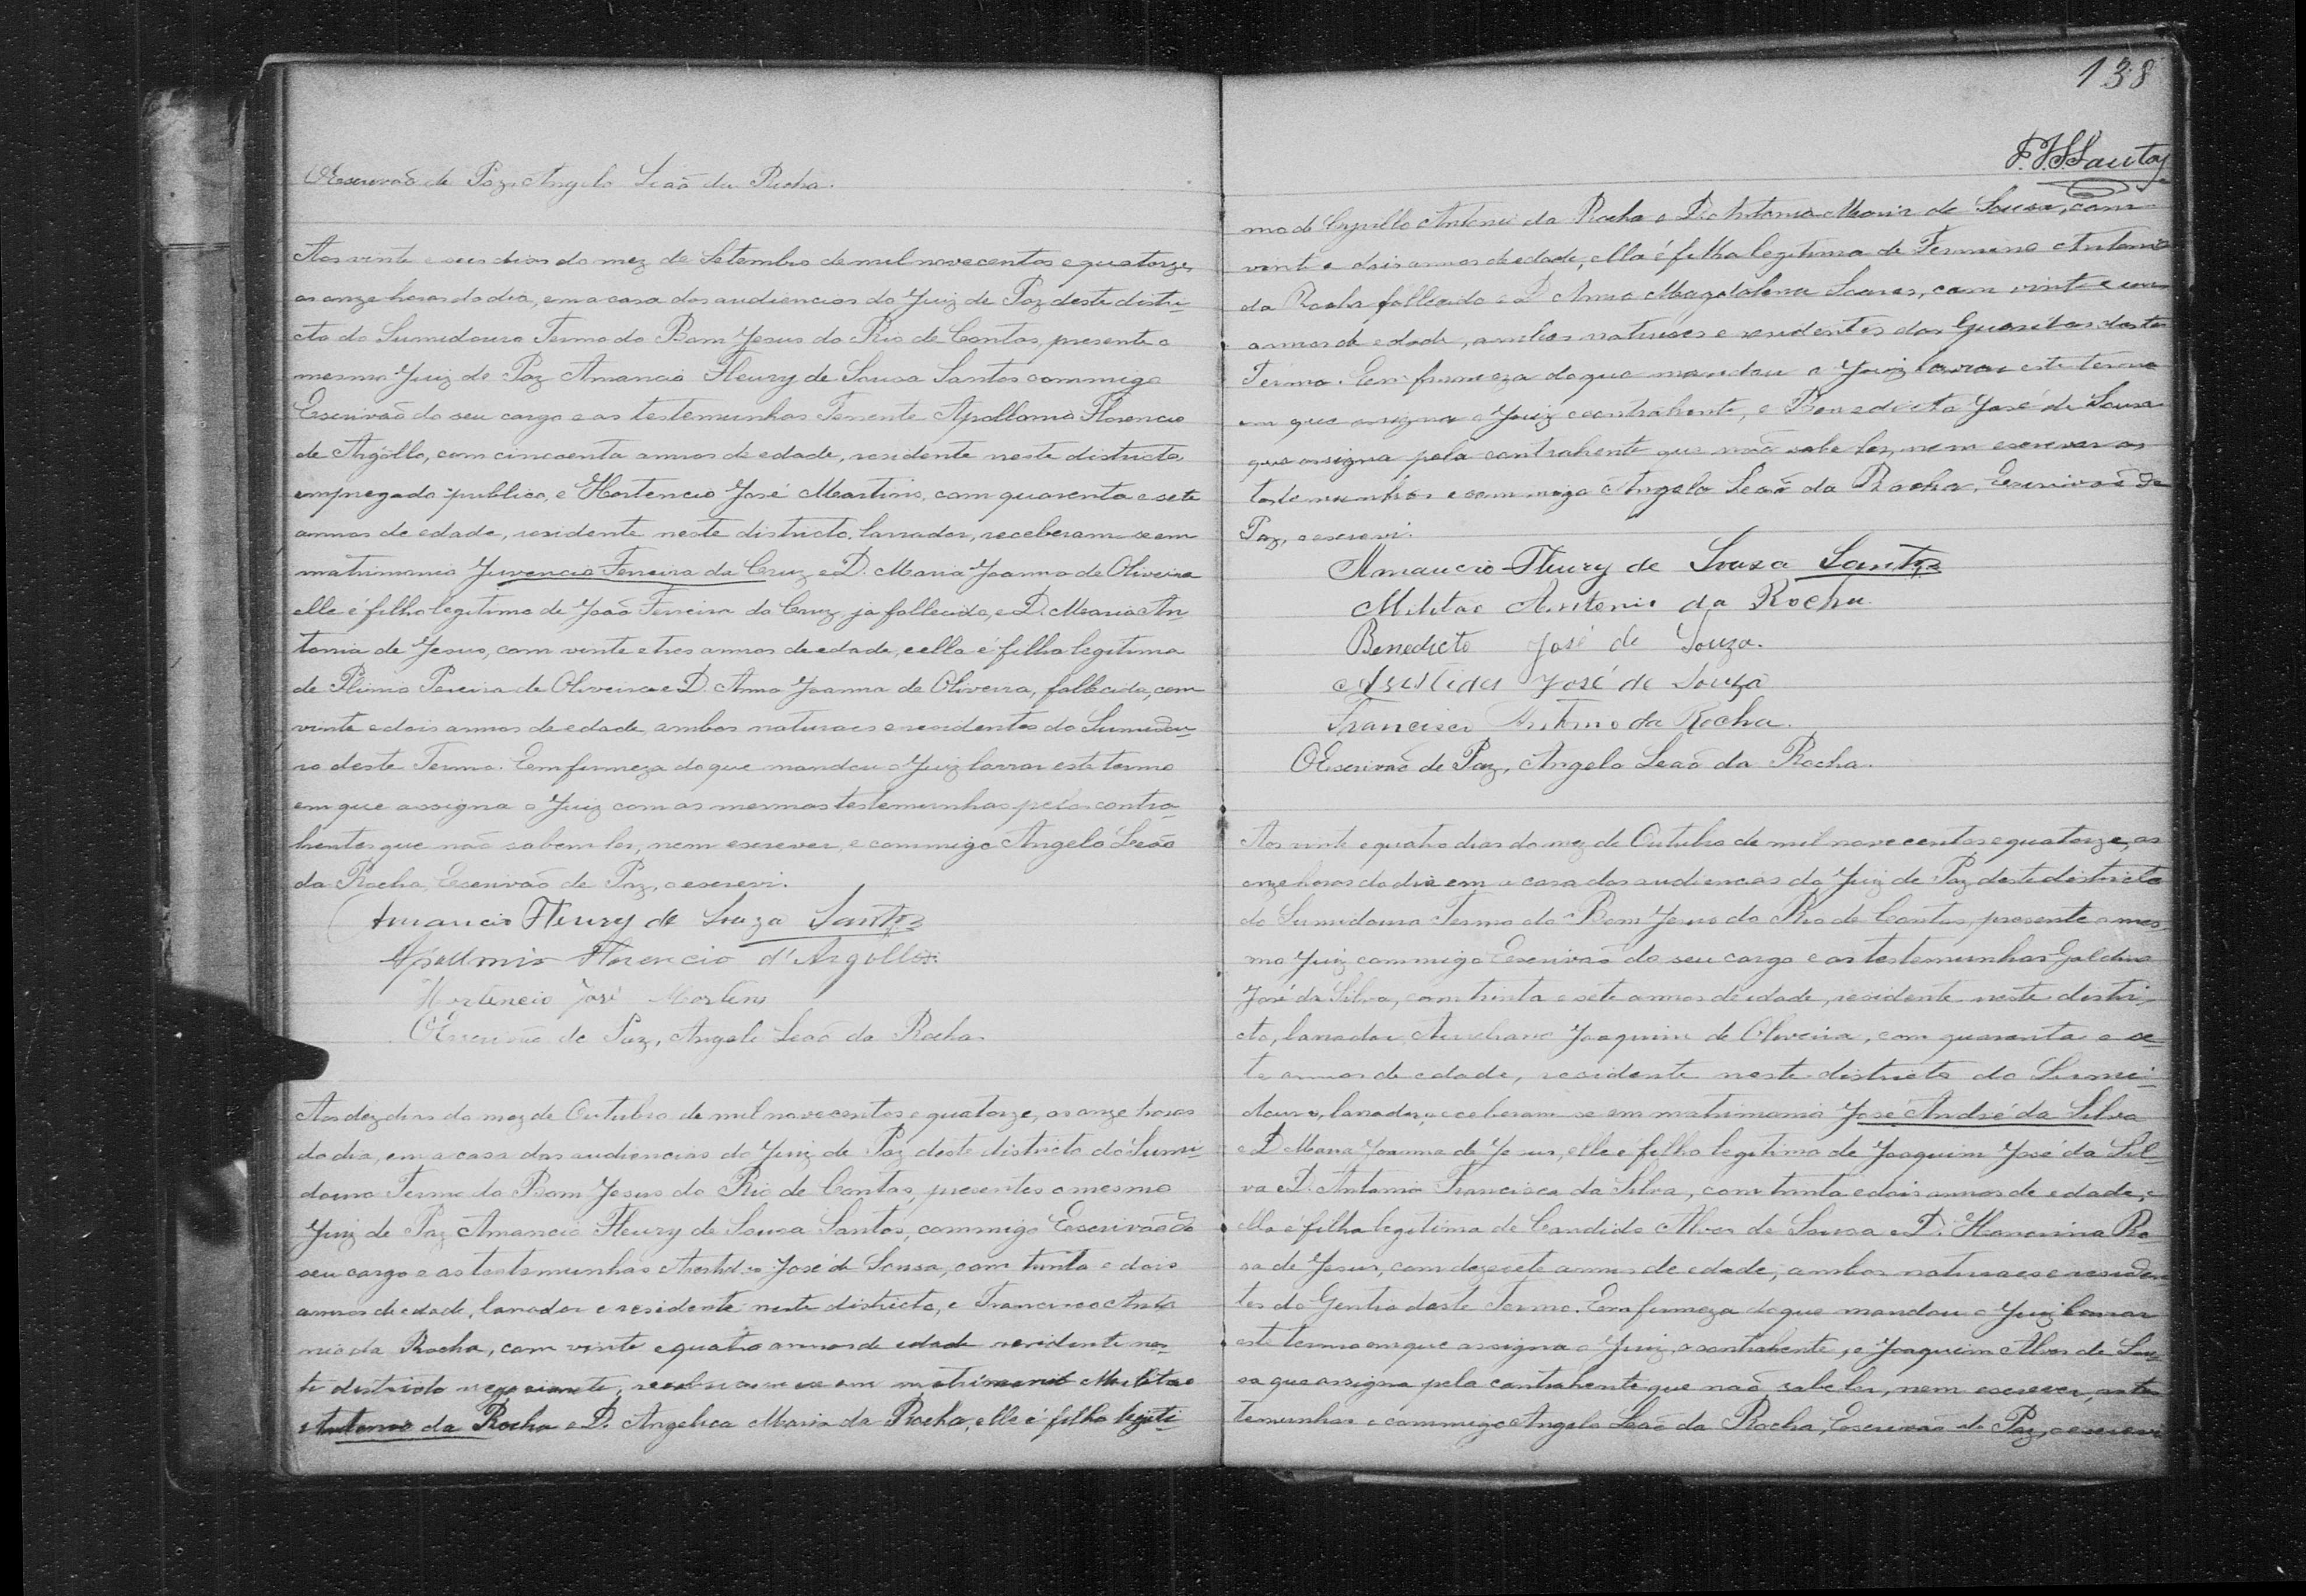 O Escrivão de Paz, Angelo Leão da Rocha.
Aos vinte e seis dias do mez de Setembro de mil novecentos e quatorze,
as onze horas do dia, em a casa das audiencias do Juiz de Paz deste distri-
cto do Sumidouro Termo do Bom Jesus do Rio de Contas, presente o
mesmo Juiz de Paz Amancio Fleury de Sousa Santos commigo
Escrivão do seu cargo e as testemunhas Tenente Apollonio Florencio
de Argôllo, com cincoenta annos de edade, residente neste districto,
empregado publico, e Hortencio José Martins, com quarenta e sete
annos de edade, residente neste districto, lavrador, receberam-se em
matrimonio Juvencio Ferreira da Cruz e D. Maria Joanna de Oliveira
elle é filho legitimo de João Ferreira da Cruz, ja fallecido, e D. Maria An-
tonia de Jesus, com vinte e tres annos de edade, e ella é filha legitima
de Plinio Pereira de Oliveira e D. Anna Joanna de Oliveira, fallecida, com
vinte e dois annos de edade, ambos naturaes e residentes do Sumidou-
ro deste Termo. Em firmeza do que mandou o Juiz lavrar este termo
em que assigna o Juiz com as mesmas testemunhas pelos contra-
hentes que não sabem ler, nem escrever, e commigo Angelo Leão
da Rocha, Escrivão de Paz, o escrevi.
Amancio Fleury de Souza Santos
Apollonio Florencio d'Argollo
Hortencio José Martins
O Escrivão de Paz, Angelo Leão da Rocha
Aos dez dias do mez de Outubro de mil novecentos e quatorze, as onze horas
do dia, em a casa das audiencias do Juiz de Paz deste districto do Sumi-
douro Termo do Bom Jesus do Rio de Contas, presentes o mesmo
Juiz de Paz Amancio Fleury de Sousa Santos, commigo Escrivão do
seu cargo e as testemunhas Aristides José de Sousa, com trinta e dois
annos de edade, lavrador e residente neste districto, e Francisco Anto
nio da Rocha, com vinte e quatro annos de edade residente nes-
te districto negociante, receberam-se em matrimonio Militão
Antonio da Rocha e D. Angelica Maria da Rocha, elle é filho legiti-
138
F. S. Santos
mo de Cyrillo Antonio da Rocha e D. Antonia Maria de Sousa, com
vinte e dois annos de edade, ella é filha legitima de Firmino Antonio
da Rocha fallecido e D. Anna Magdalena Soares, com vinte e um
annos de edade, ambos naturaes e residentes das Guaribas deste
Termo. Em firmeza do que mandou o Juiz lavrar este termo
em que assigna o Juiz o contrahente, e Benedicto José de Sousa
que assigna pela contrahente que não sabe ler, nem escrever as
testemunhas e commigo Angelo Leão da Rocha, Escrivão de
Paz, o escrevi.
Amancio Fleury de Souza Santos
Militão Antonio da Rocha
Benedicto José de Souza.
Aristides José de Souza
Francisco Antonio da Rocha.
O Escrivão de Paz, Angelo Leão da Rocha.
Aos vinte e quatro dias do mez de Outubro de mil novecentos e quatorze, as
onze horas do dia em a casa das audiencias do Juiz de Paz deste districto
do Sumidouro Termo do Bom Jesus do Rio de Contas, presente o mes-
mo Juiz commigo Escrivão do seu cargo e as testemunhas Galdino
José da Silva, com trinta e sete annos de edade, residente neste distri-
cto, lavrador Aureliano Joaquim de Oliveira, com quarenta e se-
te annos de edade, residente neste districto do Sumi-
douro, lavrador, receberam-se em matrimonio José André da Silva
e D. Maria Joanna de Jesus, elle é filho legitimo de Joaquim José da Sil-
va e D. Antonia Francisca da Silva, com trinta e dois annos de edade, e
ella é filha legitima de Candido Alves de Sousa e D. Ro
sa de Jesus, com dezesete annos de edade, ambos naturaes e residen
tes do Gentio deste Termo. Em firmeza do que mandou o Juiz lavrar
este termo em que assigna o Juiz, o contrahente, e Joaquim Alves de Sou-
sa que assigna pela contrahente que não sabe ler, nem escrever, as tes
temunhas e commigo Angelo Leão da Rocha, Escrivão de Paz, o escrevi